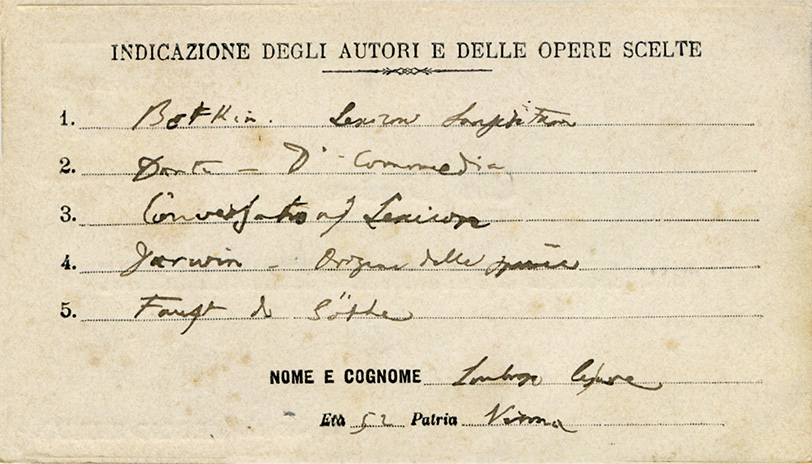 INDICAZIONE DEGLI AUTORI E DELLE OPERE SCELTE
1. Botkin. Lexicon
2. Dante – D. Commedia
3. Conversations Lexicon
4. Darwin – Origine delle specie
5. Faust di Göthe
NOME E COGNOME Lombroso Cesare
Età 52 Patria Verona